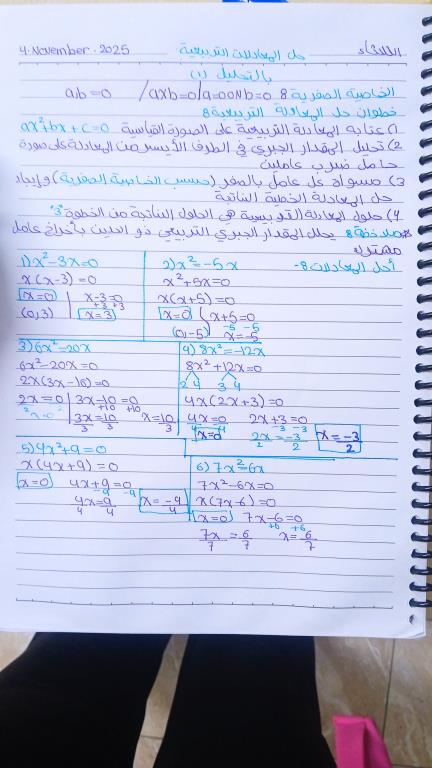 الثلاثاء حل المعادلات التربيعية 4.November.2025
بالتحليل (1)
الخاصية الصفرية 8 ab=0 /axb=0/a=0 او b=0
خطوات حل المعادلة التربيعية 8
1) كتابة المعادلة التربيعية على الصورة القياسية ax²+bx+c=0
2) تحليل المقدار الجبري في الطرف الأيسر من المعادلة على صورة
حاصل ضرب عاملين
3) مساواة كل عامل بالصفر (حسب الخاصية الصفرية) وإيجاد
حل المعادلة الخطية الناتجة
4) حلول المعادلة التربيعية هي الحلول الناتجة من الخطوة "3"
ملاحظة 8 يحلل المقدار الجبري التربيعي ذو الحدين بأخراج عامل
مشترك
أحل المعادلات 8-
1) x²-3x=0
x(x-3)=0
x=0 x-3=0
+3 +3
(0,3) x=3
2) x²=-5x
x²+5x=0
x(x+5)=0
x=0 x+5=0
-5 -5
(0,-5) x=-5
3) 6x²-20x
6x²-20x=0
2x(3x-10)=0
2x=0 3x-10=0
+10 +10
x=0 3x=10 x=10
3 3 3
4) 8x²=-12x
8x²+12x=0
2 4 3 4
4x(2x+3)=0
4x=0 2x+3=0
4 4 -3 -3
x=0 2x=-3 x=-3
2 2 2
5) 4x²+9=0
x(4x+9)=0
x=0 4x+9=0
-9 -9
4x=9 x=-9
4 4 4
6) 7x²=6x
7x²-6x=0
x(7x-6)=0
x=0 7x-6=0
+6 +6
7x=6 x=6
7 7 7